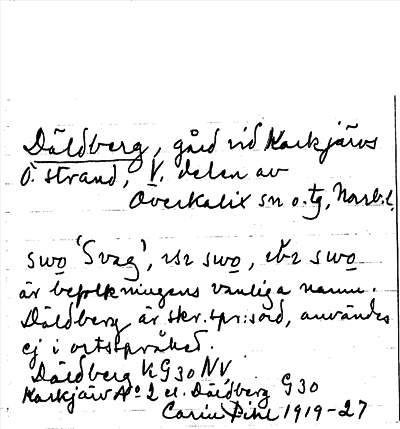 Däldberg, gård vid Karkjärvs
Ö. strand, V. delen av
Överkalix sn o. tg, Norrb. l.
swo 'Svag', swo, swo
är befolkningens vanliga namn.
Däldberg är skr.spr:sord, användes
ej i ortspråket.
Däldberg V. G30 NV
Karkjärv A° 2 el. Däldberg G30
Carin Pihl 1919-27